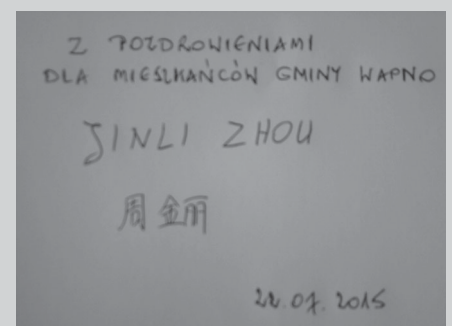 Z POZDROWIENIAMI
DLA MIESZKAŃCÓW GMINY WAPNO
JINLI ZHOU
周金丽
22.07.2015